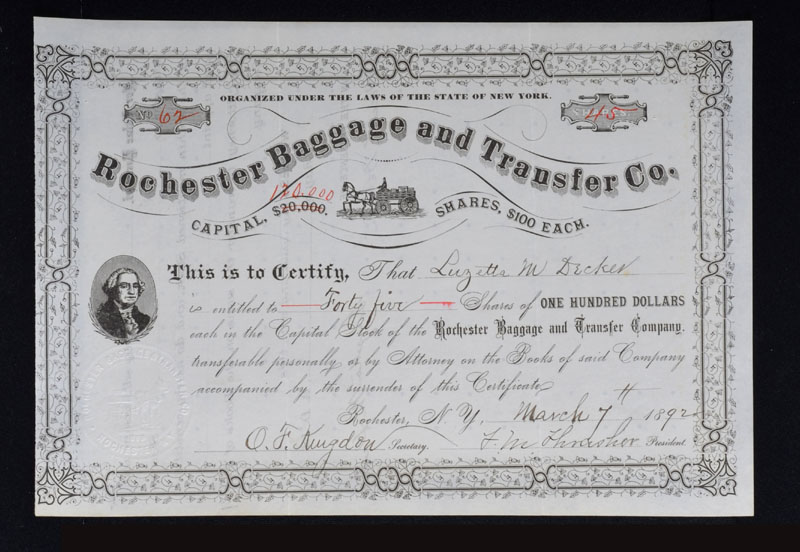 ORGANIZED UNDER THE LAWS OF THE STATE OF NEW YORK.
No 62
45
Rochester Baggage and Transfer Co.
120,000
CAPITAL, $20,000. SHARES, $100 EACH.
This is to Certify, That Luzetta M Decker
is entitled to Forty five Shares of ONE HUNDRED DOLLARS
each in the Capital Stock of the Rochester Baggage and Transfer Company,
transferable personally or by Attorney on the Books of said Company
accompanied by the surrender of this Certificate
Rochester, N.Y., March 7th 1892
O. F. Secretary. F M Thrasher President.